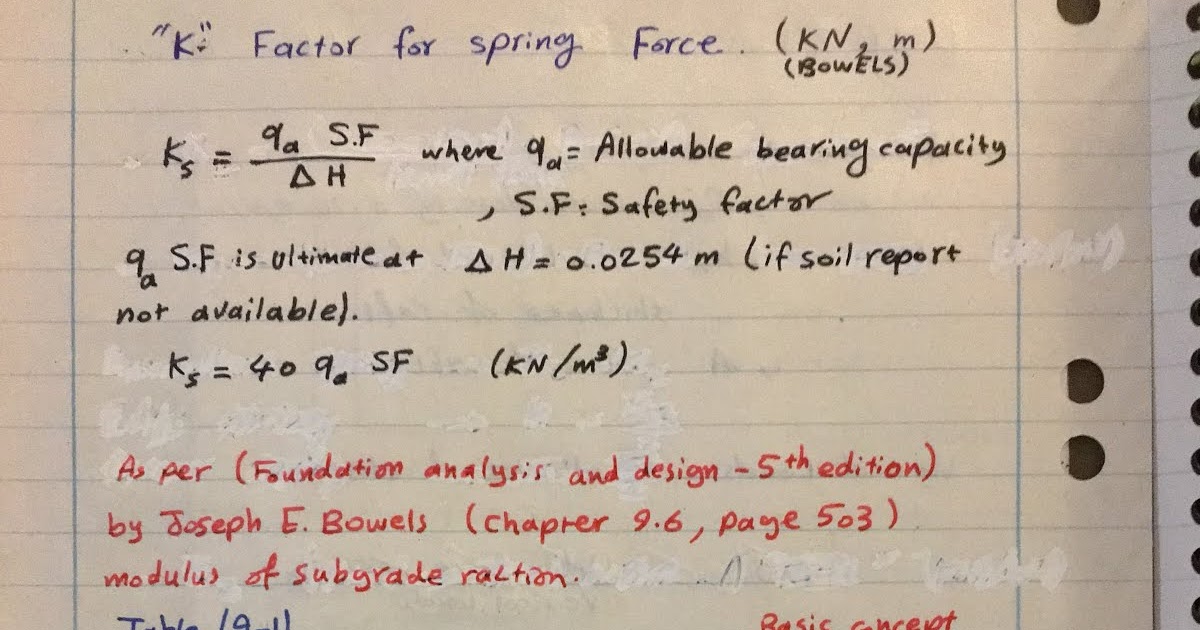 "K" Factor for spring Force. (KN, m)
(BOWELS)
Ks = qa S.F / ΔH where qa = Allowable bearing capacity
, S.F: Safety factor
qa S.F is ultimate at ΔH = 0.0254 m (if soil report
not available).
Ks = 40 qa SF (KN/m³).
As per (Foundation analysis and design - 5th edition)
by Joseph E. Bowels (chapter 9.6, page 503)
modulus of subgrade raction.
Table (9-1) Basic concept